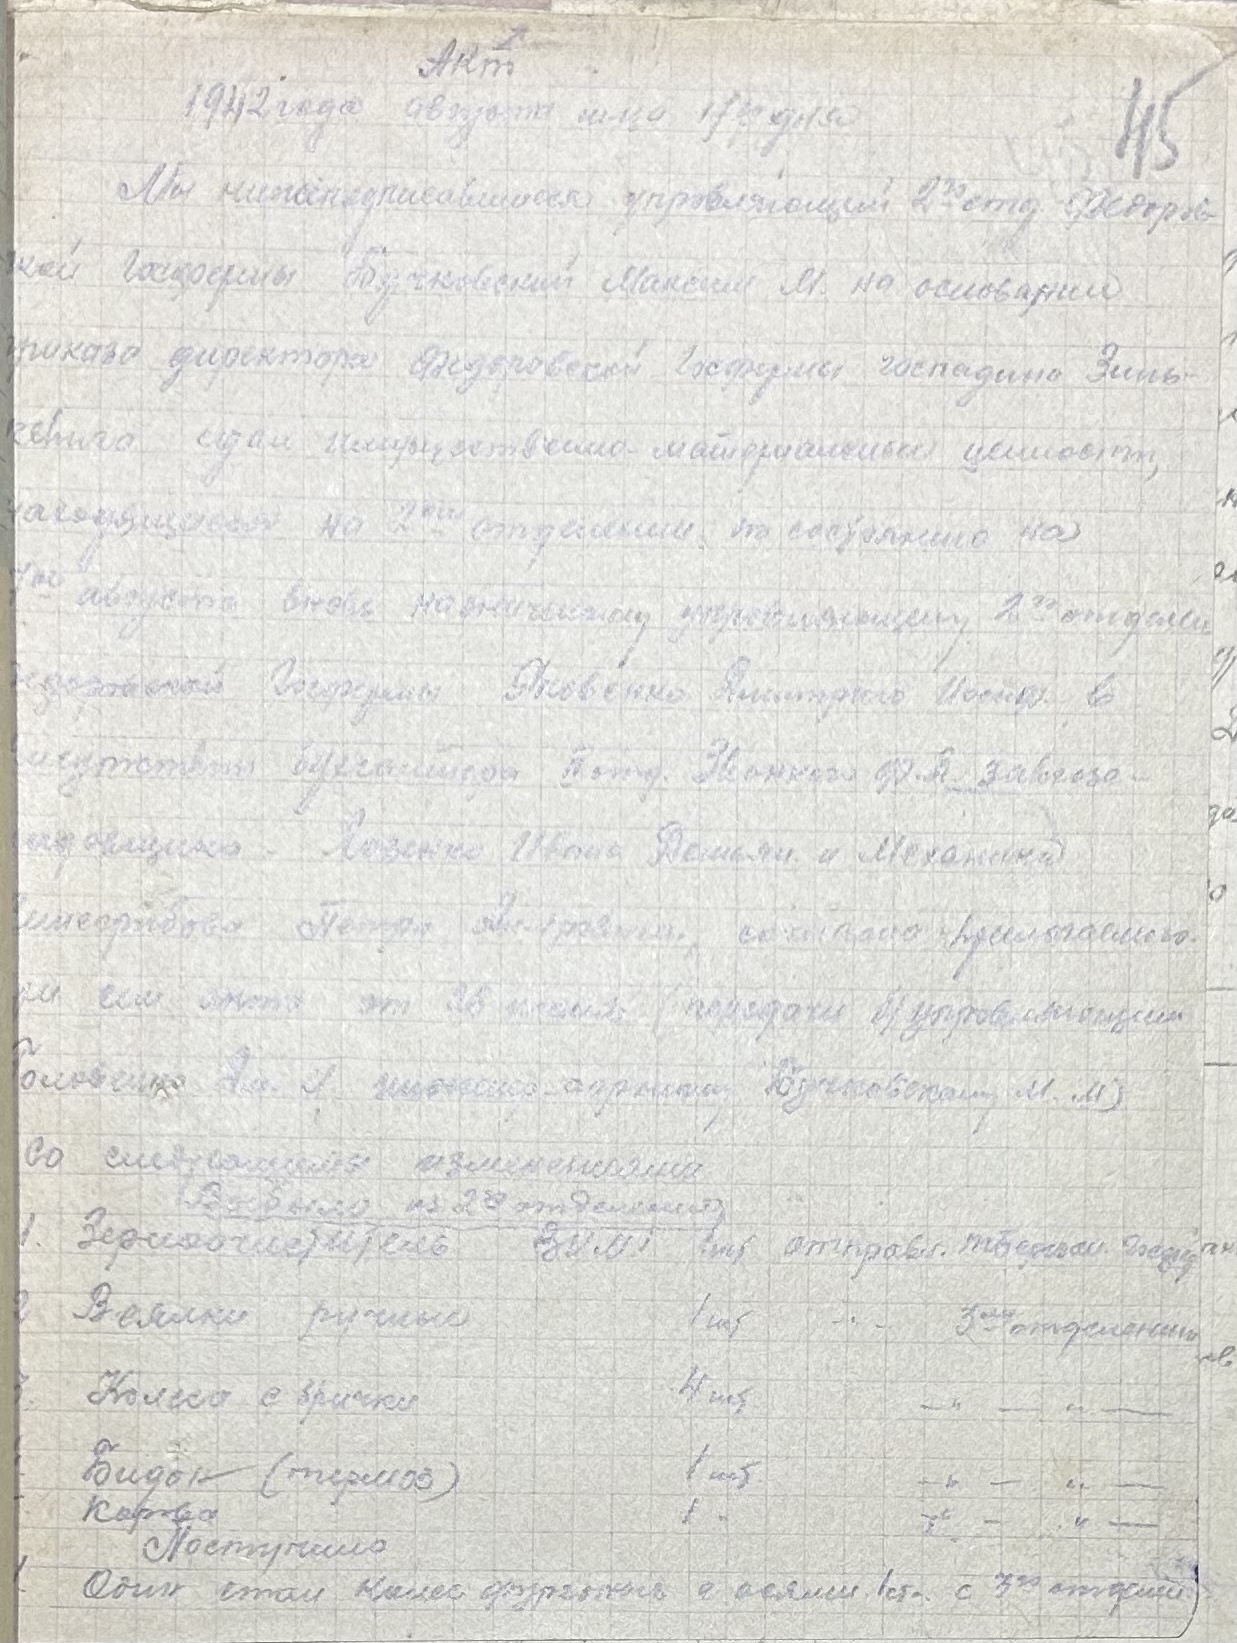 Акт
1942 года августа м-ца 17го дня
45
Мы нижеподписавшиеся управляющий 2го отд. Федоров-
ской Госфермы Бучковский Максим М. на основании
приказа директора Федоровской Госфермы господина Зинь-
сдал имущественно-материальные ценности,
находящиеся на 2ом отделении по состоянию на
августа вновь назначенному управляющему 2го отделен.
Госфермы Яковенко Дмитрию Иосиф. в
присутствии бухгалтера отд. Ф.Я. завхоза-
кладовщика - Лозенко Ивана Демьян. и Механика
Петра согласно прилагаемого
при сем акта от июня (передачи управляющим
Бучковскому М. М)
со следующими изменениями
Выбыло из 2го отделения
1. Зерноочиститель 1 шт отправл.
2 Веялки ручные 1 шт -"- 3му отделению
3 Колеса с брички 4 шт —"— "—
Бидон (термоз) 1 шт. —"— "—
1 - —"— "—
Поступило
1 Один стан колес с осями 1 ст. с 3го отделен.